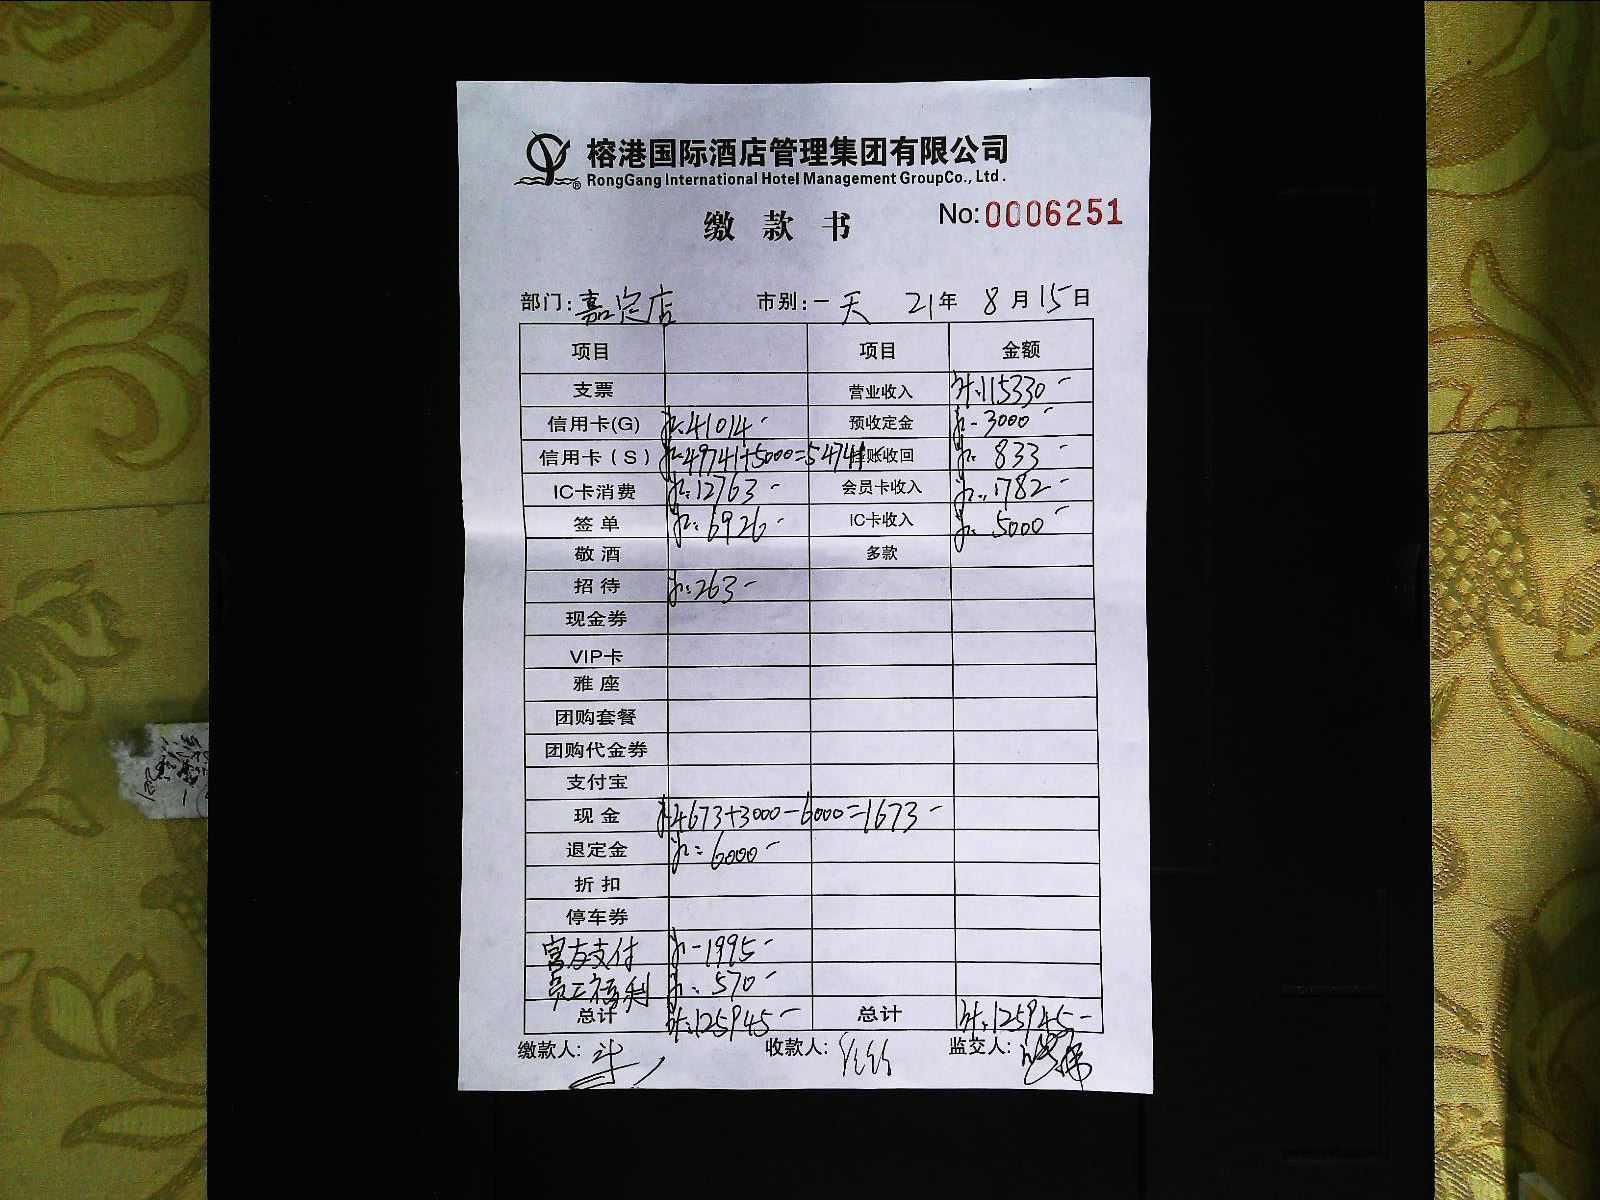 榕港国际酒店管理集团有限公司
® RongGang International Hotel Management GroupCo., Ltd.
缴款书 No:0006251
部门:嘉定店 市别:一天 21年 8月15日
项目 项目 金额
支票 营业收入 ¥:115330-
信用卡(G) ¥:41014- 预收定金 ¥:3000-
信用卡(S) ¥:49741+5000=54741 挂账收回 ¥:833-
IC卡消费 ¥:12763- 会员卡收入 ¥:1782-
签单 ¥:6926- IC卡收入 ¥:5000-
敬酒 多款
招待 ¥:263-
现金券
VIP卡
雅座
团购套餐
团购代金券
支付宝
现金 ¥4673+3000-6000=1673-
退定金 ¥:6000-
折扣
停车券
官方支付 ¥:1995-
员工福利 ¥:570-
总计 ¥:125945- 总计 ¥:125945-
缴款人: 收款人: 监交人: